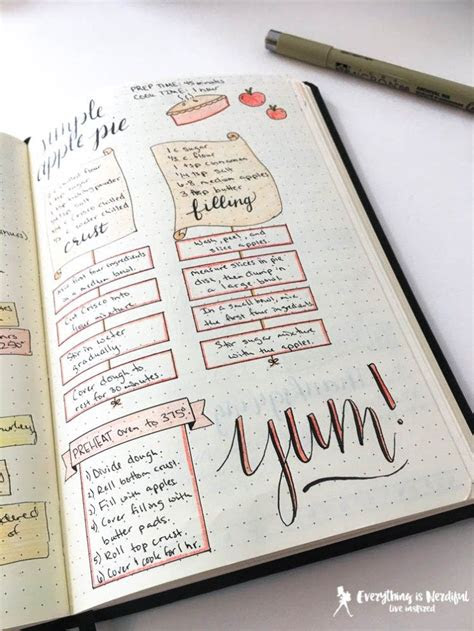 simple
apple pie
PREP TIME: 45 minutes
COOK TIME: 1 hour
flour
salt
water chilled
crust
1 c sugar
1/2 c flour
1 tsp cinnamon
1/4 tsp salt
6-8 medium apples
butter
filling
first four ingredients
in a medium bowl.
Cut Crisco into
flour mixture.
Stir in water
gradually.
Cover dough to
rest for 30 minutes.
Wash, peel, and
slice apples.
Measure slices in pie
dish, then dump in
a large bowl.
In a small bowl, mix
the first four ingredients.
Stir sugar mixture
with the apples.
PREHEAT OVEN TO 375°
1) Divide dough.
2) Roll bottom crust.
3) Fill with apples
4) Cover filling with
butter pads.
5) Roll top crust.
6) Cover & cook for 1 hr.
yum!
Everything is Nerdiful
live inspired